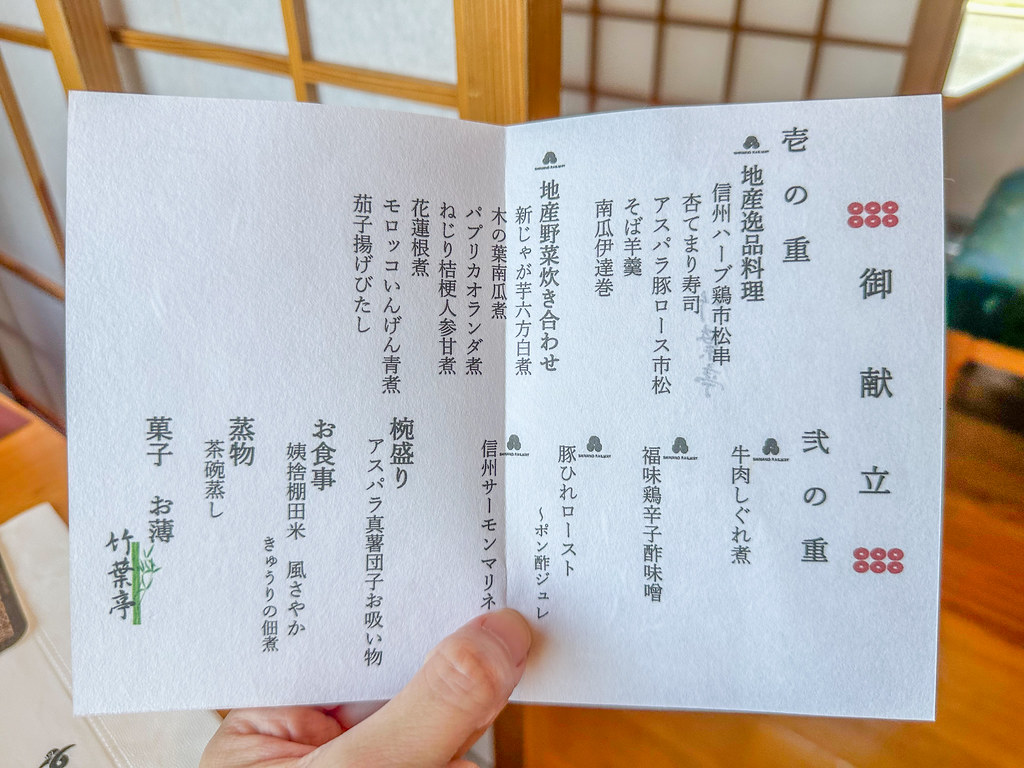 御献立
壱の重
地産逸品料理
信州ハーブ鶏市松串
杏てまり寿司
アスパラ豚ロース市松
そば羊羹
南瓜伊達巻
地産野菜炊き合わせ
新じゃが芋六方白煮
木の葉南瓜煮
パプリカオランダ煮
ねじり桔梗人参甘煮
花蓮根煮
モロッコいんげん青煮
茄子揚げびたし
弐の重
牛肉しぐれ煮
福味鶏辛子酢味噌
豚ひれロースト
~ポン酢ジュレ
信州サーモンマリネ
椀盛り
アスパラ真薯団子お吸い物
お食事
姨捨棚田米 風さやか
きゅうりの佃煮
蒸物
茶碗蒸し
菓子 お薄
竹葉亭